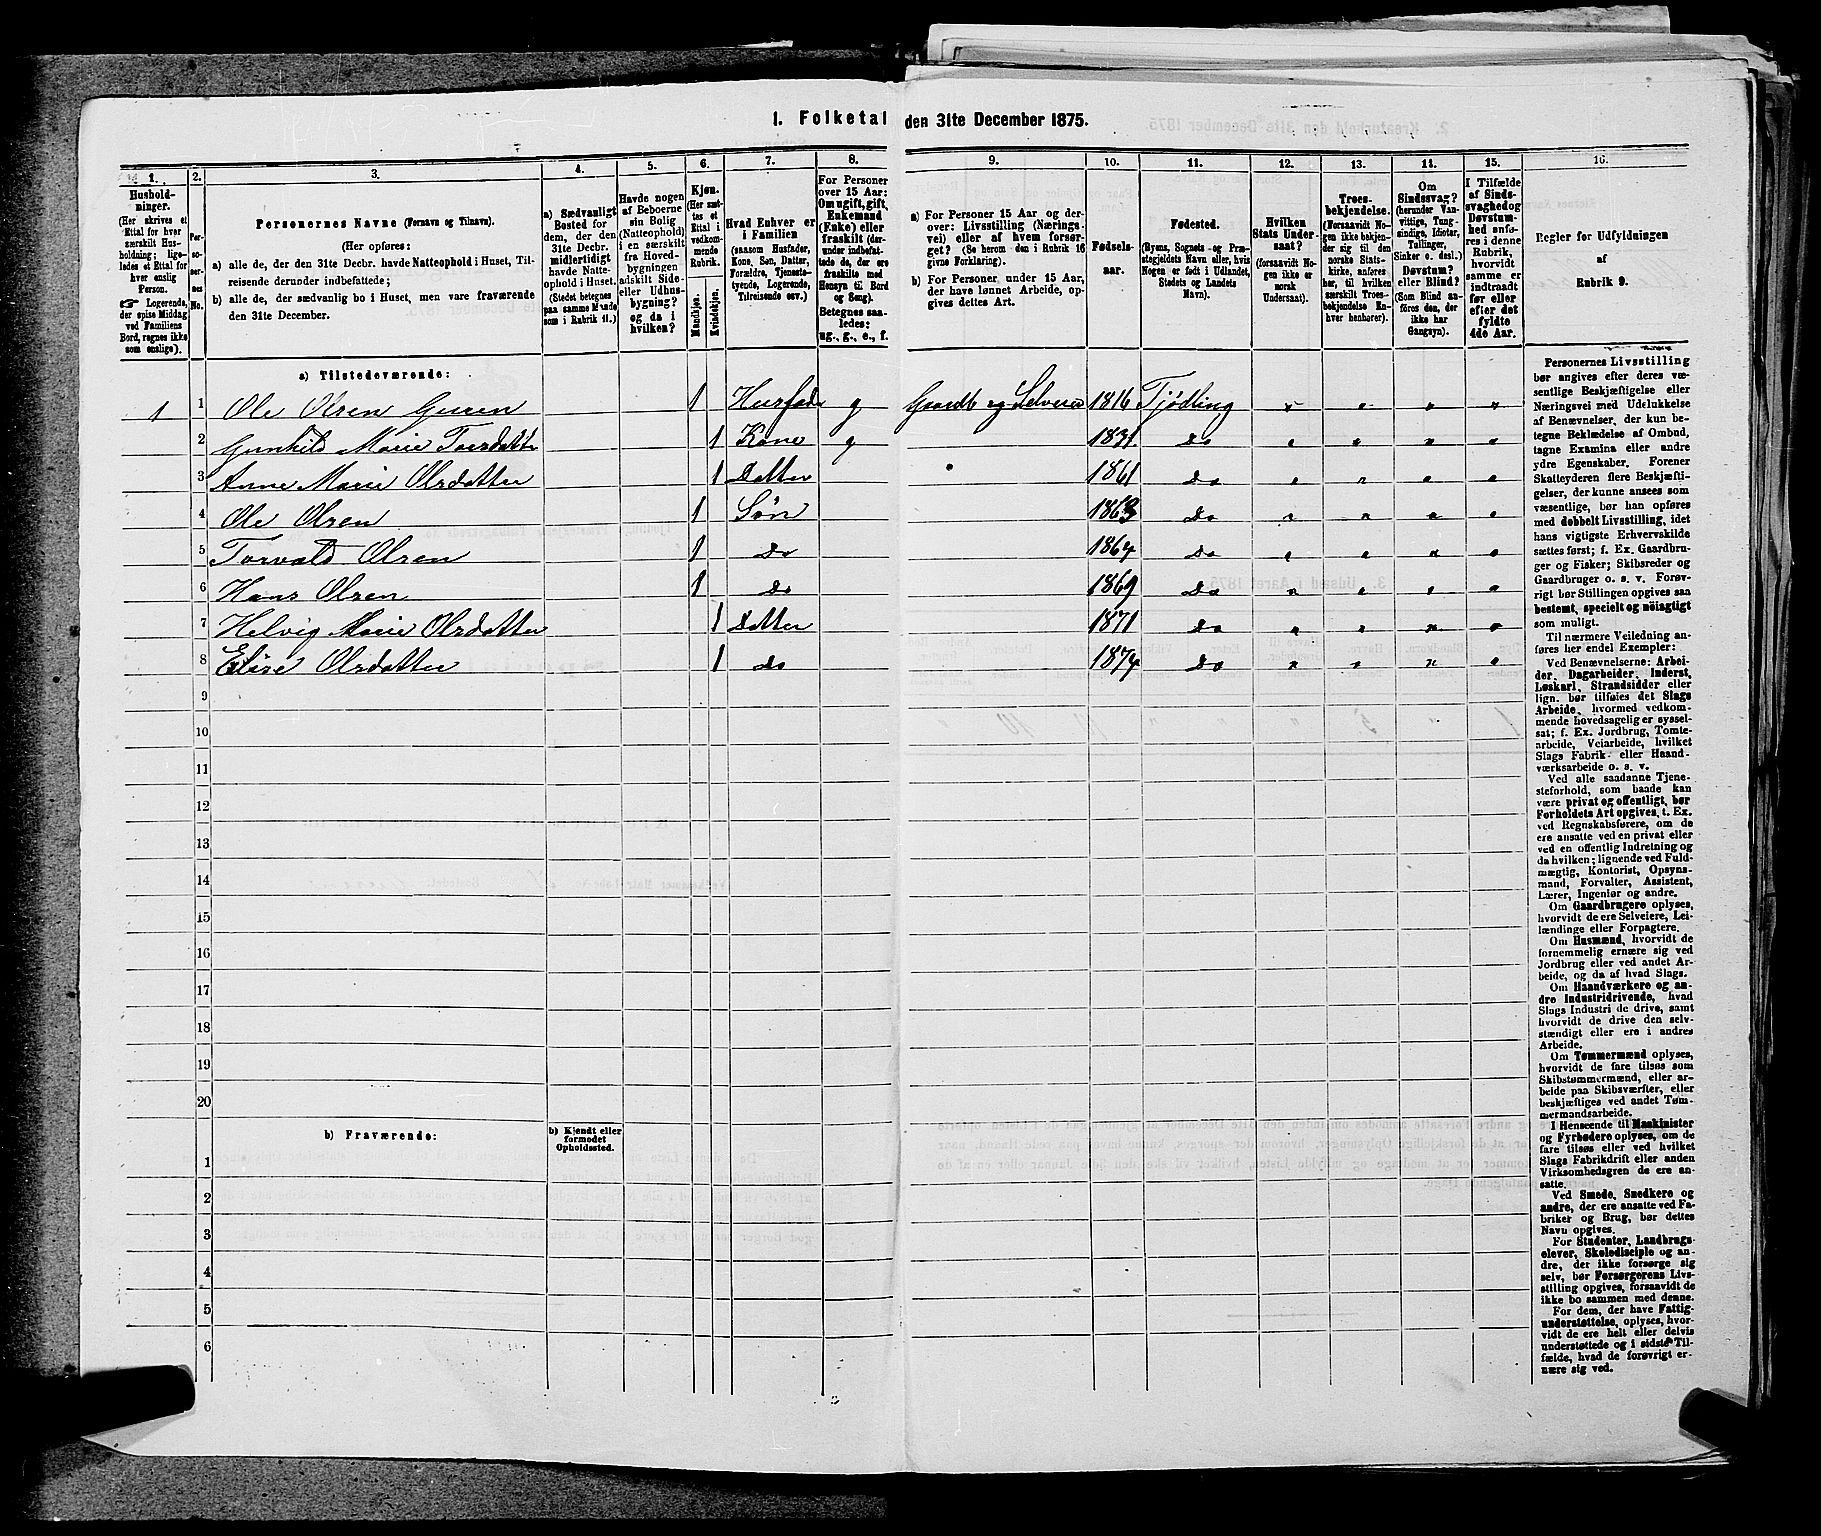 1. Folketal den 31te December 1875.
1. 2. 3. 4. 5. 6. 7. 8. 9. 10. 11. 12. 13. 14. 15. 16.
Hushold-
ninger.
(Her skrives et
Ettal for hver
særskilt Hus-
holdning; lige-
ledes et Ettal for
hver enslig
Person.
☞ Logerende,
der spise Middag
ved Familiens
Bord, regnes ikke
som enslige).
Per-
so-
ner-
nes
No.
Personernes Navne (Fornavn og Tilnavn).
(Her opføres:
a) alle de, der den 31te Decbr. havde Natteophold i Huset, Til-
reisende derunder indbefattede;
b) alle de, der sædvanlig bo i Huset, men vare fraværende
den 31te December.
a) Sædvanligt
Bosted for
dem, der den
31te Decbr.
midlertidigt
havde Natte-
ophold i Huset.
(Stedet betegnes
paa samme Maade
som i Rubrik 11.)
Havde nogen
af Beboerne
sin Bolig
(Natteophold)
i en særskilt
fra Hoved-
bygningen
adskilt Side-
eller Udhus-
bygning?
og da i
hvilken?
Kjøn.
(Her sæt-
tes et
Ettal i
vedkom-
mende
Rubrik.
Mandkjøn.
Kvindekjøn.
Hvad Enhver er
i Familien
(saasom Husfader,
Kone, Søn, Datter,
Forældre, Tjeneste-
tyende, Logerende,
Tilreisende osv.)
For Personer
over 15 Aar:
Om ugift, gift,
Enkemand
(Enke) eller
fraskilt (der-
under indbefat-
tede de, der ere
fraskilte med
Hensyn til Bord
og Seng).
Betegnes saa-
ledes:
ug., g., e., f.
a) For Personer 15 Aar og der-
over: Livsstilling (Nærings-
vei) eller af hvem forsør-
get? (Se herom den i Rubrik 16
givne Forklaring).
b) For Personer under 15 Aar,
der have lønnet Arbeide, op-
gives dettes Art.
Fødsels-
aar.
Fødested.
(Byens, Sognets og Præ-
stegjeldets Navn eller, hvis
Nogen er født i Udlandet,
Stedets og Landets
Navn).
Hvilken
Stats Under-
saat?
(forsaavidt No-
gen ikke er
norsk
Undersaat).
Troes-
bekjendelse.
(Forsaavidt No-
gen ikke bekjen-
der sig til den
norske Stats-
kirke, anføres
her, til hvilken
særskilt Troes-
bekjendelse En-
hver henhører).
Om
Sindssvag?
(herunder Van-
vittige, Tung-
sindige, Idioter,
Tullinger,
Sinker o. desl.).
Døvstum?
eller Blind?
(Som Blind an-
føres den, der
ikke har
Gangsyn).
I Tilfælde
af Sinds-
svaghed og
Døvstum-
hed anfø-
res i denne
Rubrik,
hvorvidt
samme er
indtraadt
før eller
efter det
fyldte
4de Aar.
Regler for Udfyldningen
af
Rubrik 9.
a) Tilstedeværende:
1 1 Ole Olsen Guren 1 Husfader g Gaardb og Selveier 1816 Tjødling
2 Gunhild Marie Torsdatter 1 Kone g 1831 Do
3 Anne Marie Olsdatter 1 Datter 1861 Do
4 Ole Olsen 1 Søn 1863 Do
5 Torvald Olsen 1 do 1864 Do
6 Hans Olsen 1 do 1869 Do
7 Helvig Marie Olsdatter 1 Datter 1871 Do
8 Elise Olsdatter 1 do 1874 Do
9
10
11
12
13
14
15
16
17
18
19
20
b) Fraværende:
b) Kjendt eller
formodet
Opholdssted.
1
2
3
4
5
6
Personernes Livsstilling
bør angives efter deres væ-
sentlige Beskjæftigelse eller
Næringsvei med Udelukkelse
af Benævnelser, der kun be-
tegne Beklædelse af Ombud,
tagne Examina eller andre
ydre Egenskaber. Forener
Skatteyderen flere Beskjæfti-
gelser, der kunne ansees som
væsentlige, bør han opføres
med dobbelt Livsstilling, idet
hans vigtigste Erhvervskilde
sættes først; f. Ex. Gaardbru-
ger og Fisker; Skibsreder og
Gaardbruger o. s. v. Forøv-
rigt bør Stillingen opgives saa
bestemt, specielt og nøiagtigt
som muligt.
Til nærmere Veiledning an-
føres her endel Exempler:
Ved Benævnelserne: Arbei-
der, Dagarbeider, Inderst,
Løskarl, Strandsidder eller
lign. bør tilføies det Slags
Arbeide, hvormed vedkom-
mende hovedsagelig er syssel-
sat; f. Ex. Jordbrug, Tomte-
arbeide, Veiarbeide, hvilket
Slags Fabrik- eller Haand-
værksarbeide o. s. v.
Ved alle saadanne Tjene-
steforhold, som baade kan
være privat og offentligt, bør
Forholdets Art opgives, t. Ex.
ved Regnskabsførere, om de
ere ansatte ved en privat eller
ved en offentlig Indretning og
da hvilken; lignende ved Fuld-
mægtig, Kontorist, Opsyns-
mand, Forvalter, Assistent,
Lærer, Ingeniør og andre.
Om Gaardbrugere oplyses,
hvorvidt de ere Selveiere, Lei-
lændinge eller Forpagtere.
Om Husmænd, hvorvidt de
fornemmelig ernære sig ved
Jordbrug eller ved andet Ar-
beide, og da af hvad Slags.
Om Haandværkere og an-
dre Industridrivende, hvad
Slags Industri de drive, samt
hvorvidt de drive den selv-
stændigt eller ere i andres
Arbeide.
Om Tømmermænd oplyses,
hvorvidt de fare tilsøs som
Skibstømmermænd, eller ar-
beide paa Skibsværfter, eller
beskjæftiges ved andet Tøm-
mermandsarbeide.
I Henseende til Maskinister
og Fyrbødere oplyses, om de
fare tilsøs eller ved hvilket
Slags Fabrikdrift eller anden
Virksomhedsgren de ere an-
satte.
Ved Smede, Snedkere og
andre, der ere ansatte ved Fa-
briker og Brug, bør dettes
Navn opgives.
For Studenter, Landbrugs-
elever, Skoledisciple og an-
dre, der ikke forsørge sig
selv, bør Forsørgerens Livs-
stilling opgives, forsaavidt de
ikke bo sammen med denne.
For dem, der have Fattig-
understøttelse, oplyses, hvor-
vidt de ere helt eller delvis
understøttede og i sidste Til-
fælde, hvad de forøvrigt er-
nære sig ved.